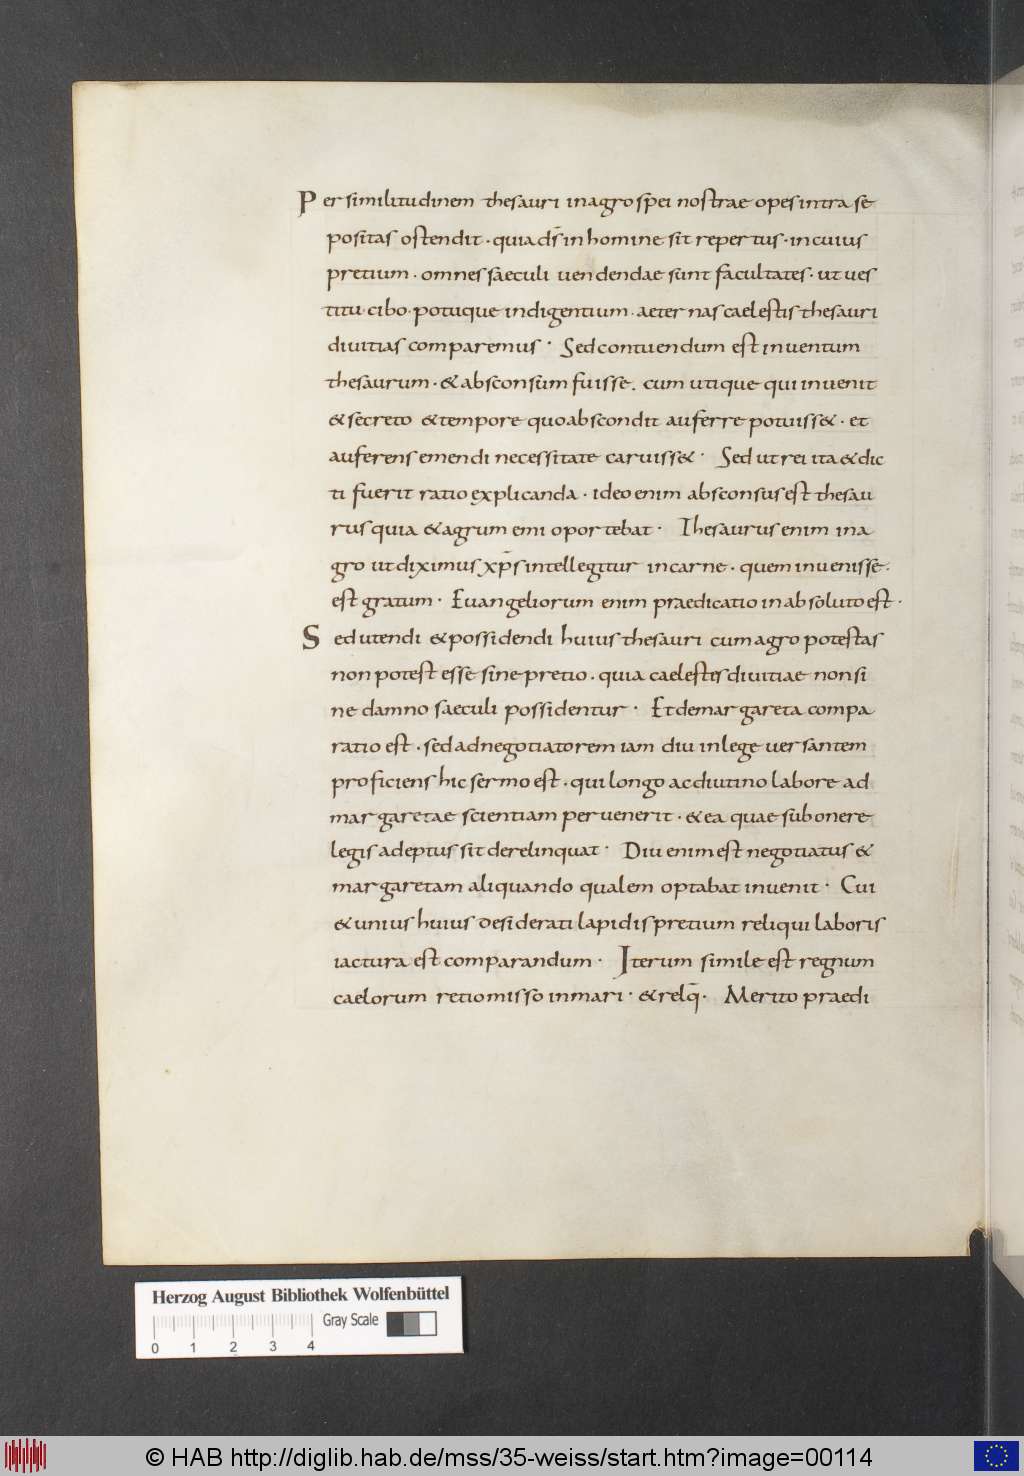 Per similitudinem thesauri inagro spei nostrae opes intra se
positas ostendit · quia d̅s̅ in homine sit repertus · in cuius
pretium · omnes saeculi uendendae sunt facultates · ut ues
titu · cibo · potuque indigentium · aeternas caelestis thesauri
diuitias comparemus · Sed contuendum est inuentum
thesaurum · & absconsum fuisse . cum utique qui inuenit
& secreto & tempore quo abscondit auferre potuiss& · et
auferens emendi necessitate caruiss& · Sed ut rei ita & dic
ti fuerit ratio explicanda · ideo enim absconsus est thesau
rus quia & agrum emi oportebat · Thesaurus enim ina
gro ut diximus xp̅s intellegitur in carne · quem inuenisse ·
est gratum · Euangeliorum enim praedicatio in absoluto est ·
Sed utendi & possidendi huius thesauri cum agro potestas
non potest esse sine pretio · quia caelestes diuitiae non si
ne damno saeculi possidentur · Et de margareta compa
ratio est · sed ad negotiatorem iam diu in lege uersantem
proficiens hic sermo est · qui longo ac diutino labore ad
margaretae scientiam peruenerit · & ea quae sub onere
legis adeptus sit derelinquat · Diu enim est negotiatus &
margaretam aliquando qualem optabat inuenit · Cui
& unius huius desiderati lapidis pretium reliqui laboris
iactura est comparandum · Iterum simile est regnum
caelorum retio misso in mari · & relq̅ · Merito praedi
Herzog August Bibliothek Wolfenbüttel
Gray Scale
0 1 2 3 4
© HAB http://diglib.hab.de/mss/35-weiss/start.htm?image=00114